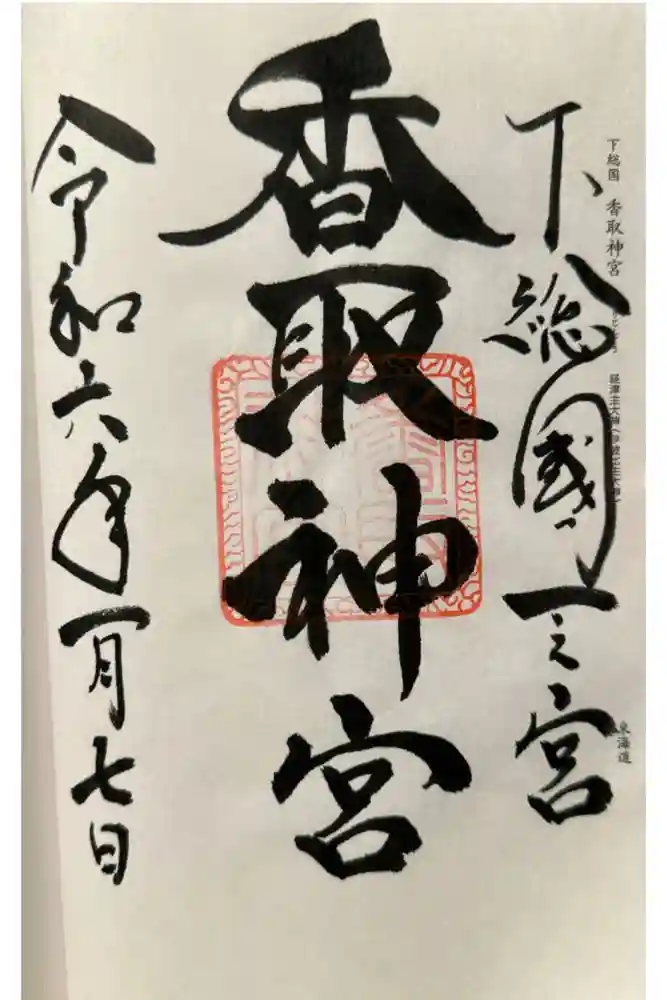 下総国 香取神宮
経津主大神(伊波比主大神)
東海道
下総國一之宮
香取神宮
令和六年一月七日